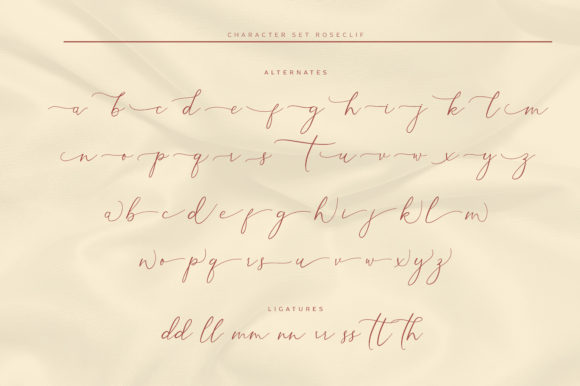 CHARACTER SET ROSECLIF
ALTERNATES
a b c d e f g h i j k l m
n o p q r s t u v w x y z
a b c d e f g h i j k l m
n o p q r s u v w x y z
LIGATURES
dd ll mm nn rr ss tt th